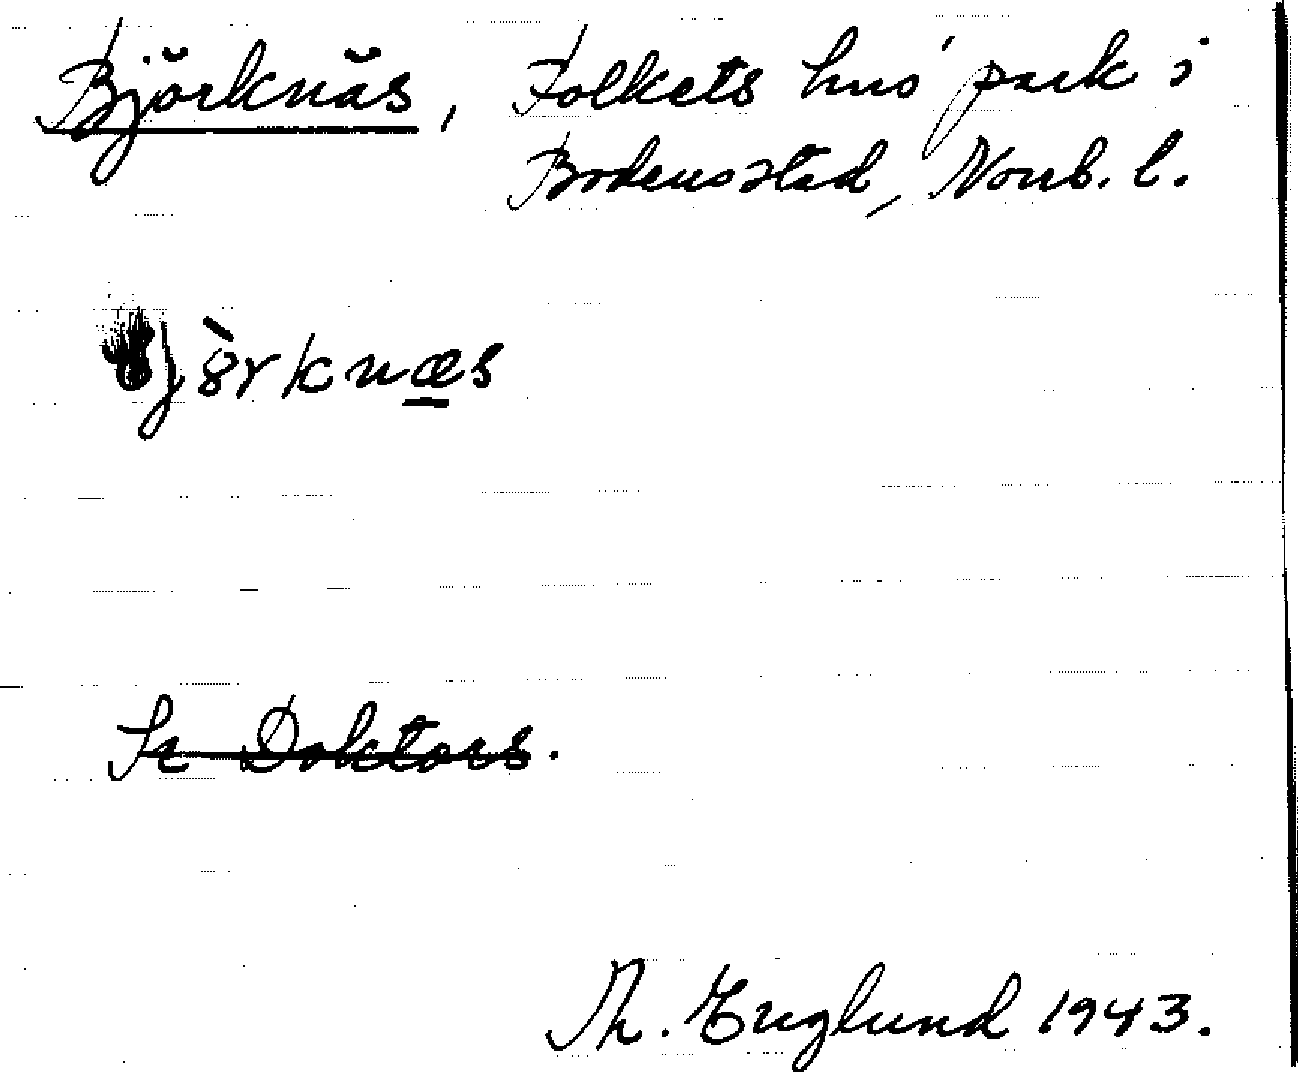 Björknäs, Folkets hus' park i
Bodens stad, Norrb. l.
bjòrknæs
Se Doktors.
Th. Englund 1943.